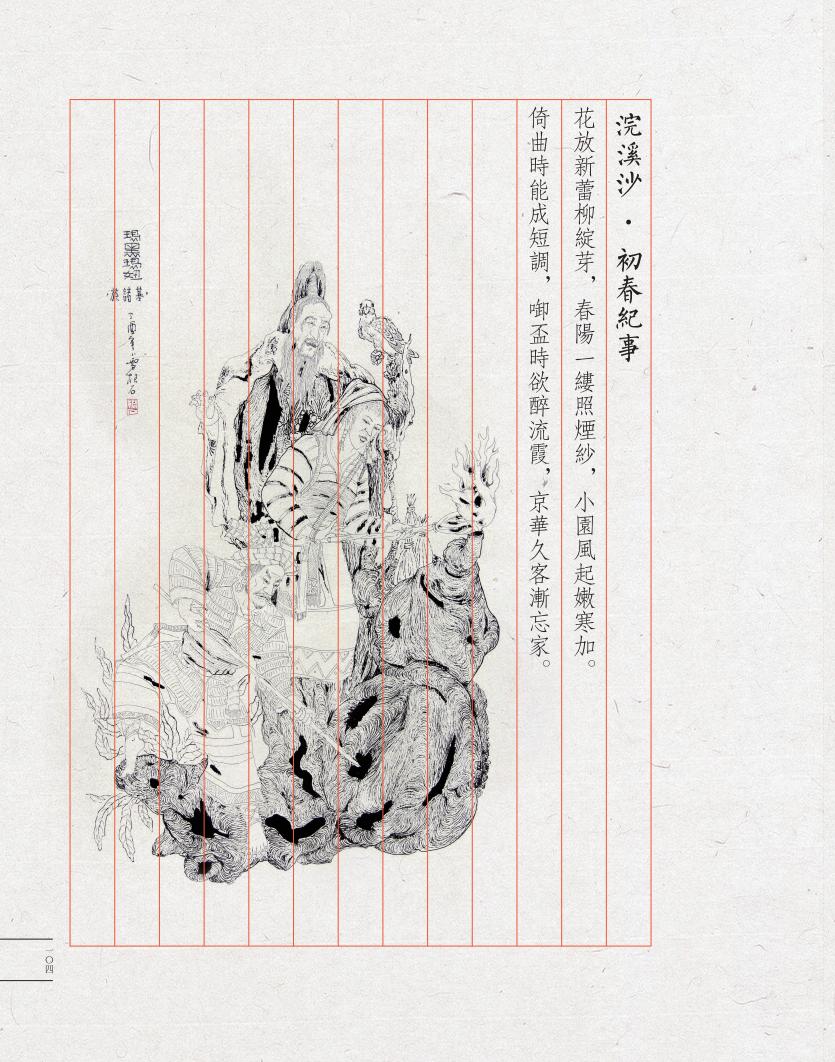 浣溪沙・初春紀事
花放新蕾柳綻芽，春陽一縷照煙紗，小園風起嫩寒加。
倚曲時能成短調，啣盃時欲醉流霞，京華久客漸忘家。
丁酉年
一〇四